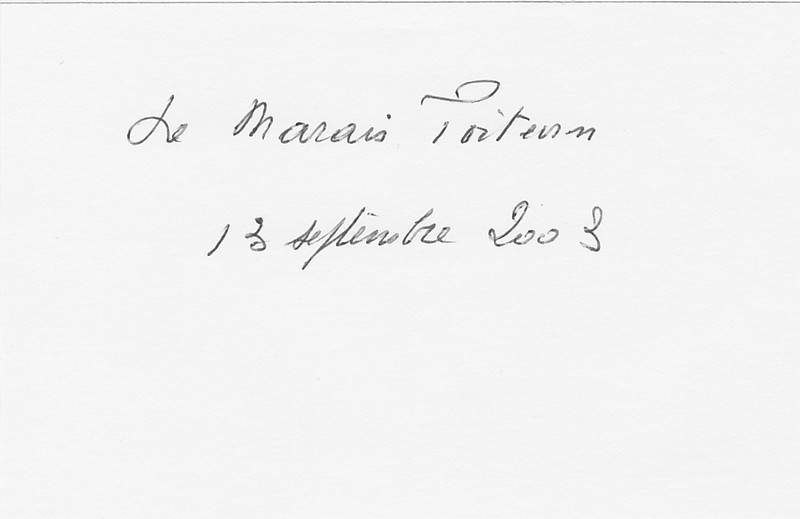 Le Marais Poitevin
13 septembre 2003